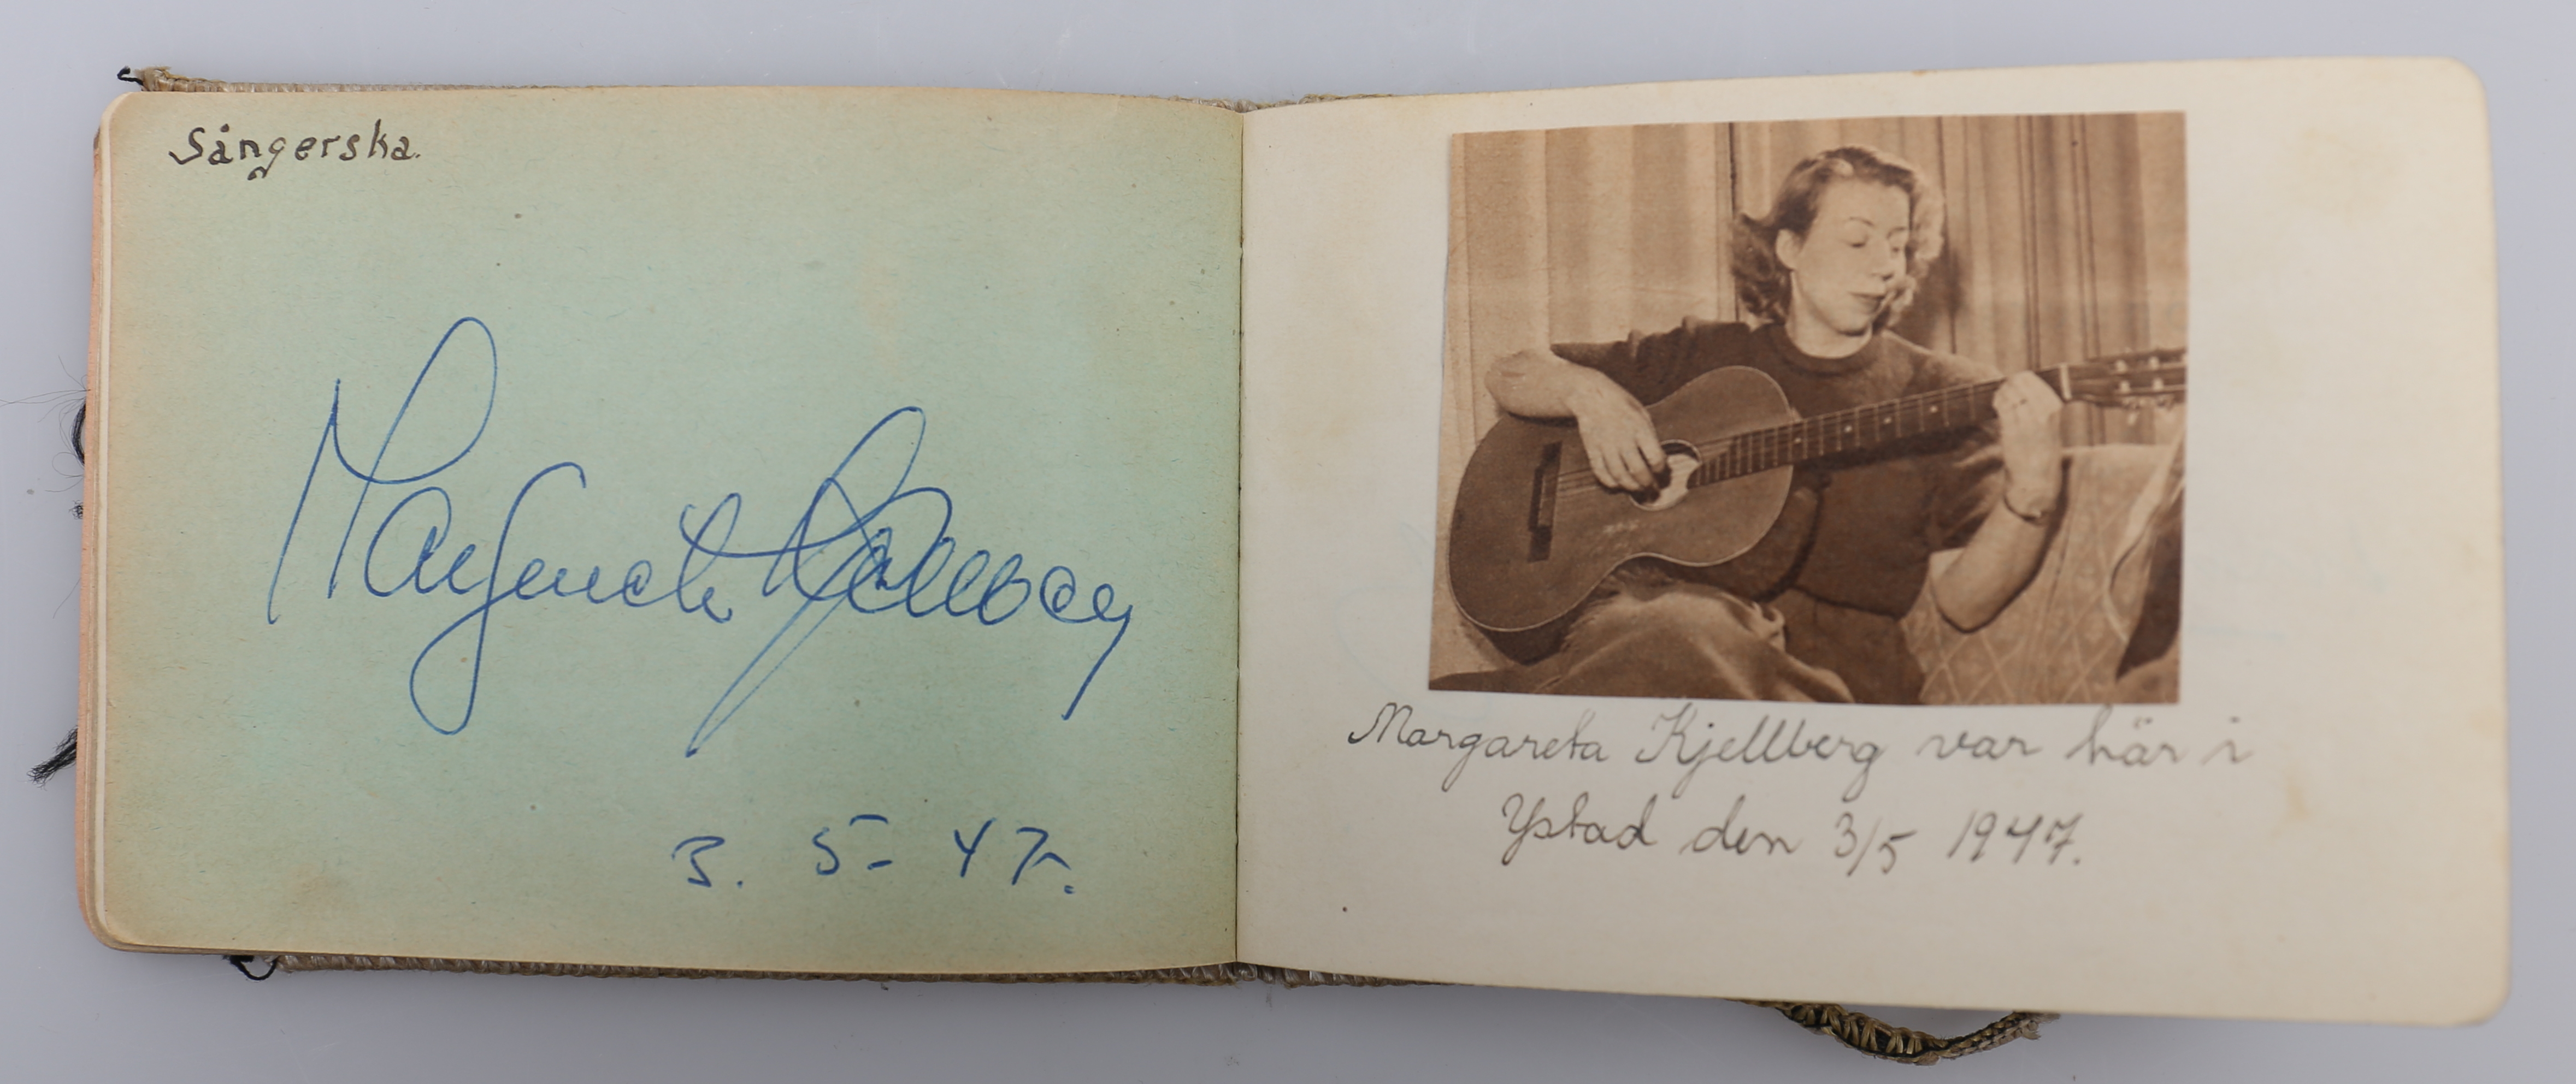 Sångerska.
Margareta Kjellberg
3. 5- 47.
Margareta Kjellberg var här i
Ystad den 3/5 1947.